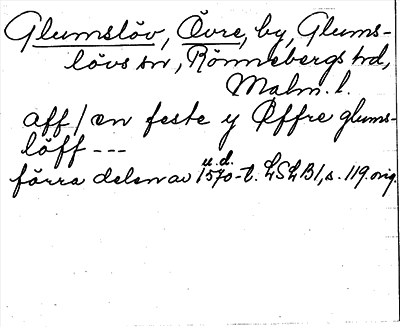 Glumslöv, Övre, by, Glums-
lövs sn, Rönnebergs hd,
Malm. l.
aff / en feste y Øffre glums-
löff ---
u.d.
förra delen av 1570-t. LSLB1, s. 119. orig.